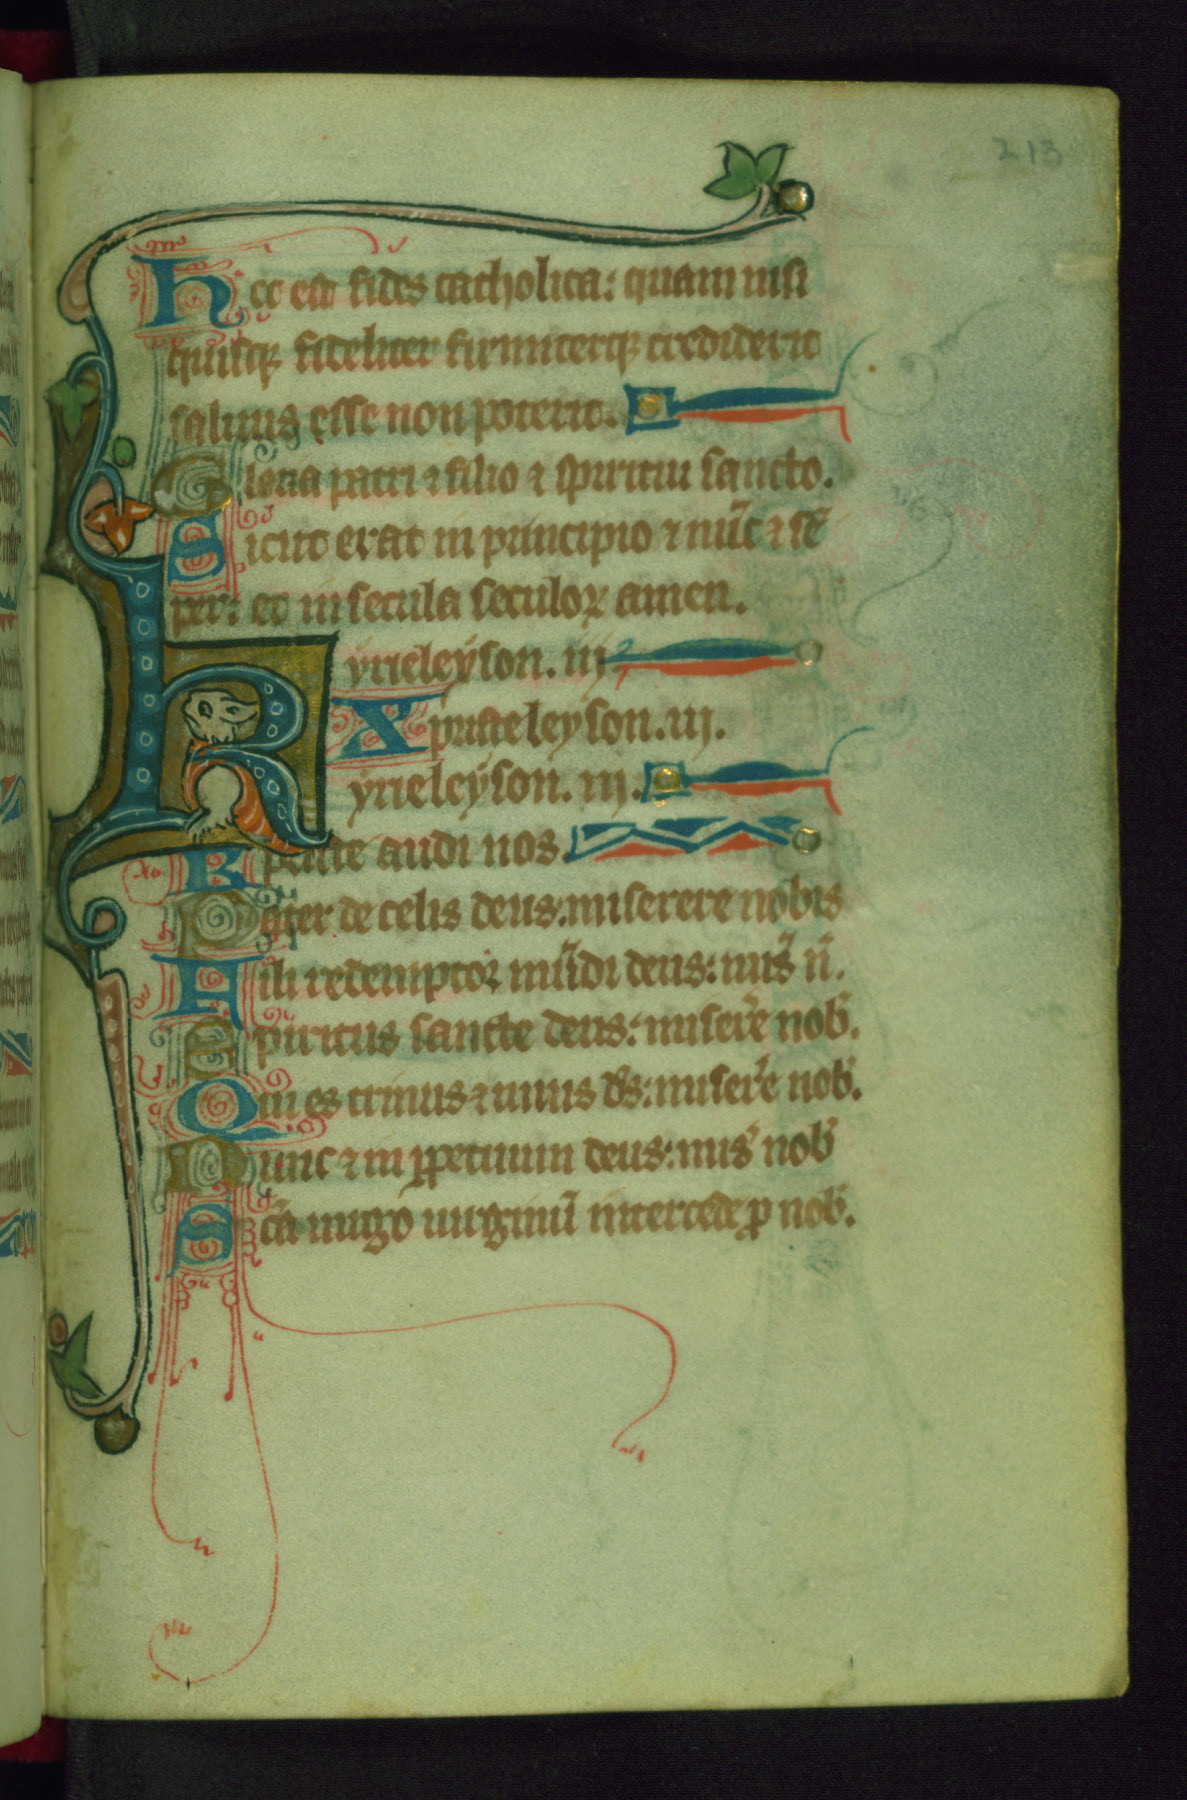 213
Hec est fides catholica: quam nisi
quisq; fideliter firmiterq; crediderit
saluus esse non poterit.
Gloria patri ⁊ filio ⁊ spiritui sancto.
Sicut erat in principio ⁊ nūc ⁊ sē
per: et in secula seculoꝝ amen.
Kyrieleyson. iij.
Xpristeleyson. iij.
yrieleyson. iij.
Xpriste audi nos
Pater de celis deus: miserere nobis
Fili redemptor mūdi deus: mis̄ n̄.
Spiritus sancte deus: misere nob̄.
Qui es trinus ⁊ unus ds̄: misere nob̄.
Nunc ⁊ in ꝑpetuum deus: mis̄ nob̄
Scā uirgo uirginū intercede ꝓ nob̄.